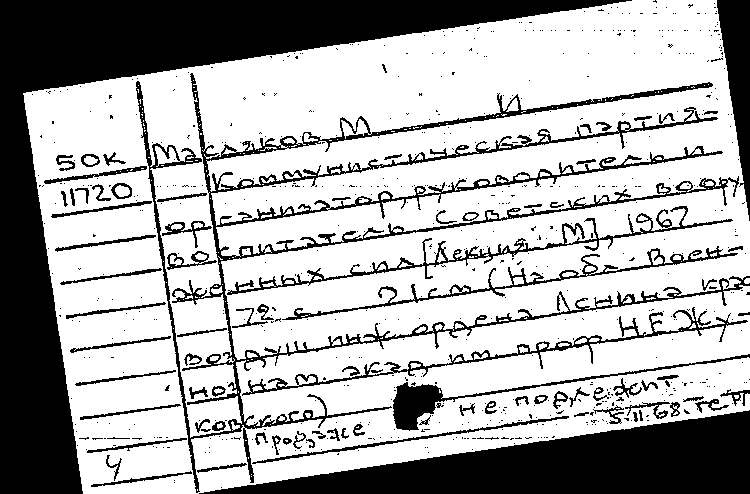 50к Масляков, М И
11720 Коммунистическая партия-
организатор, руководитель и
воспитатель советских воору
женных сил [Лекция. М], 1967
72 с. 21 см (На обл. Воен-
возд̶уш инж. ордена Ленина крас
нознам. акад. им. проф Н.Е.Жу-
ковского)
продаже не подлежит
4 5.II.68.